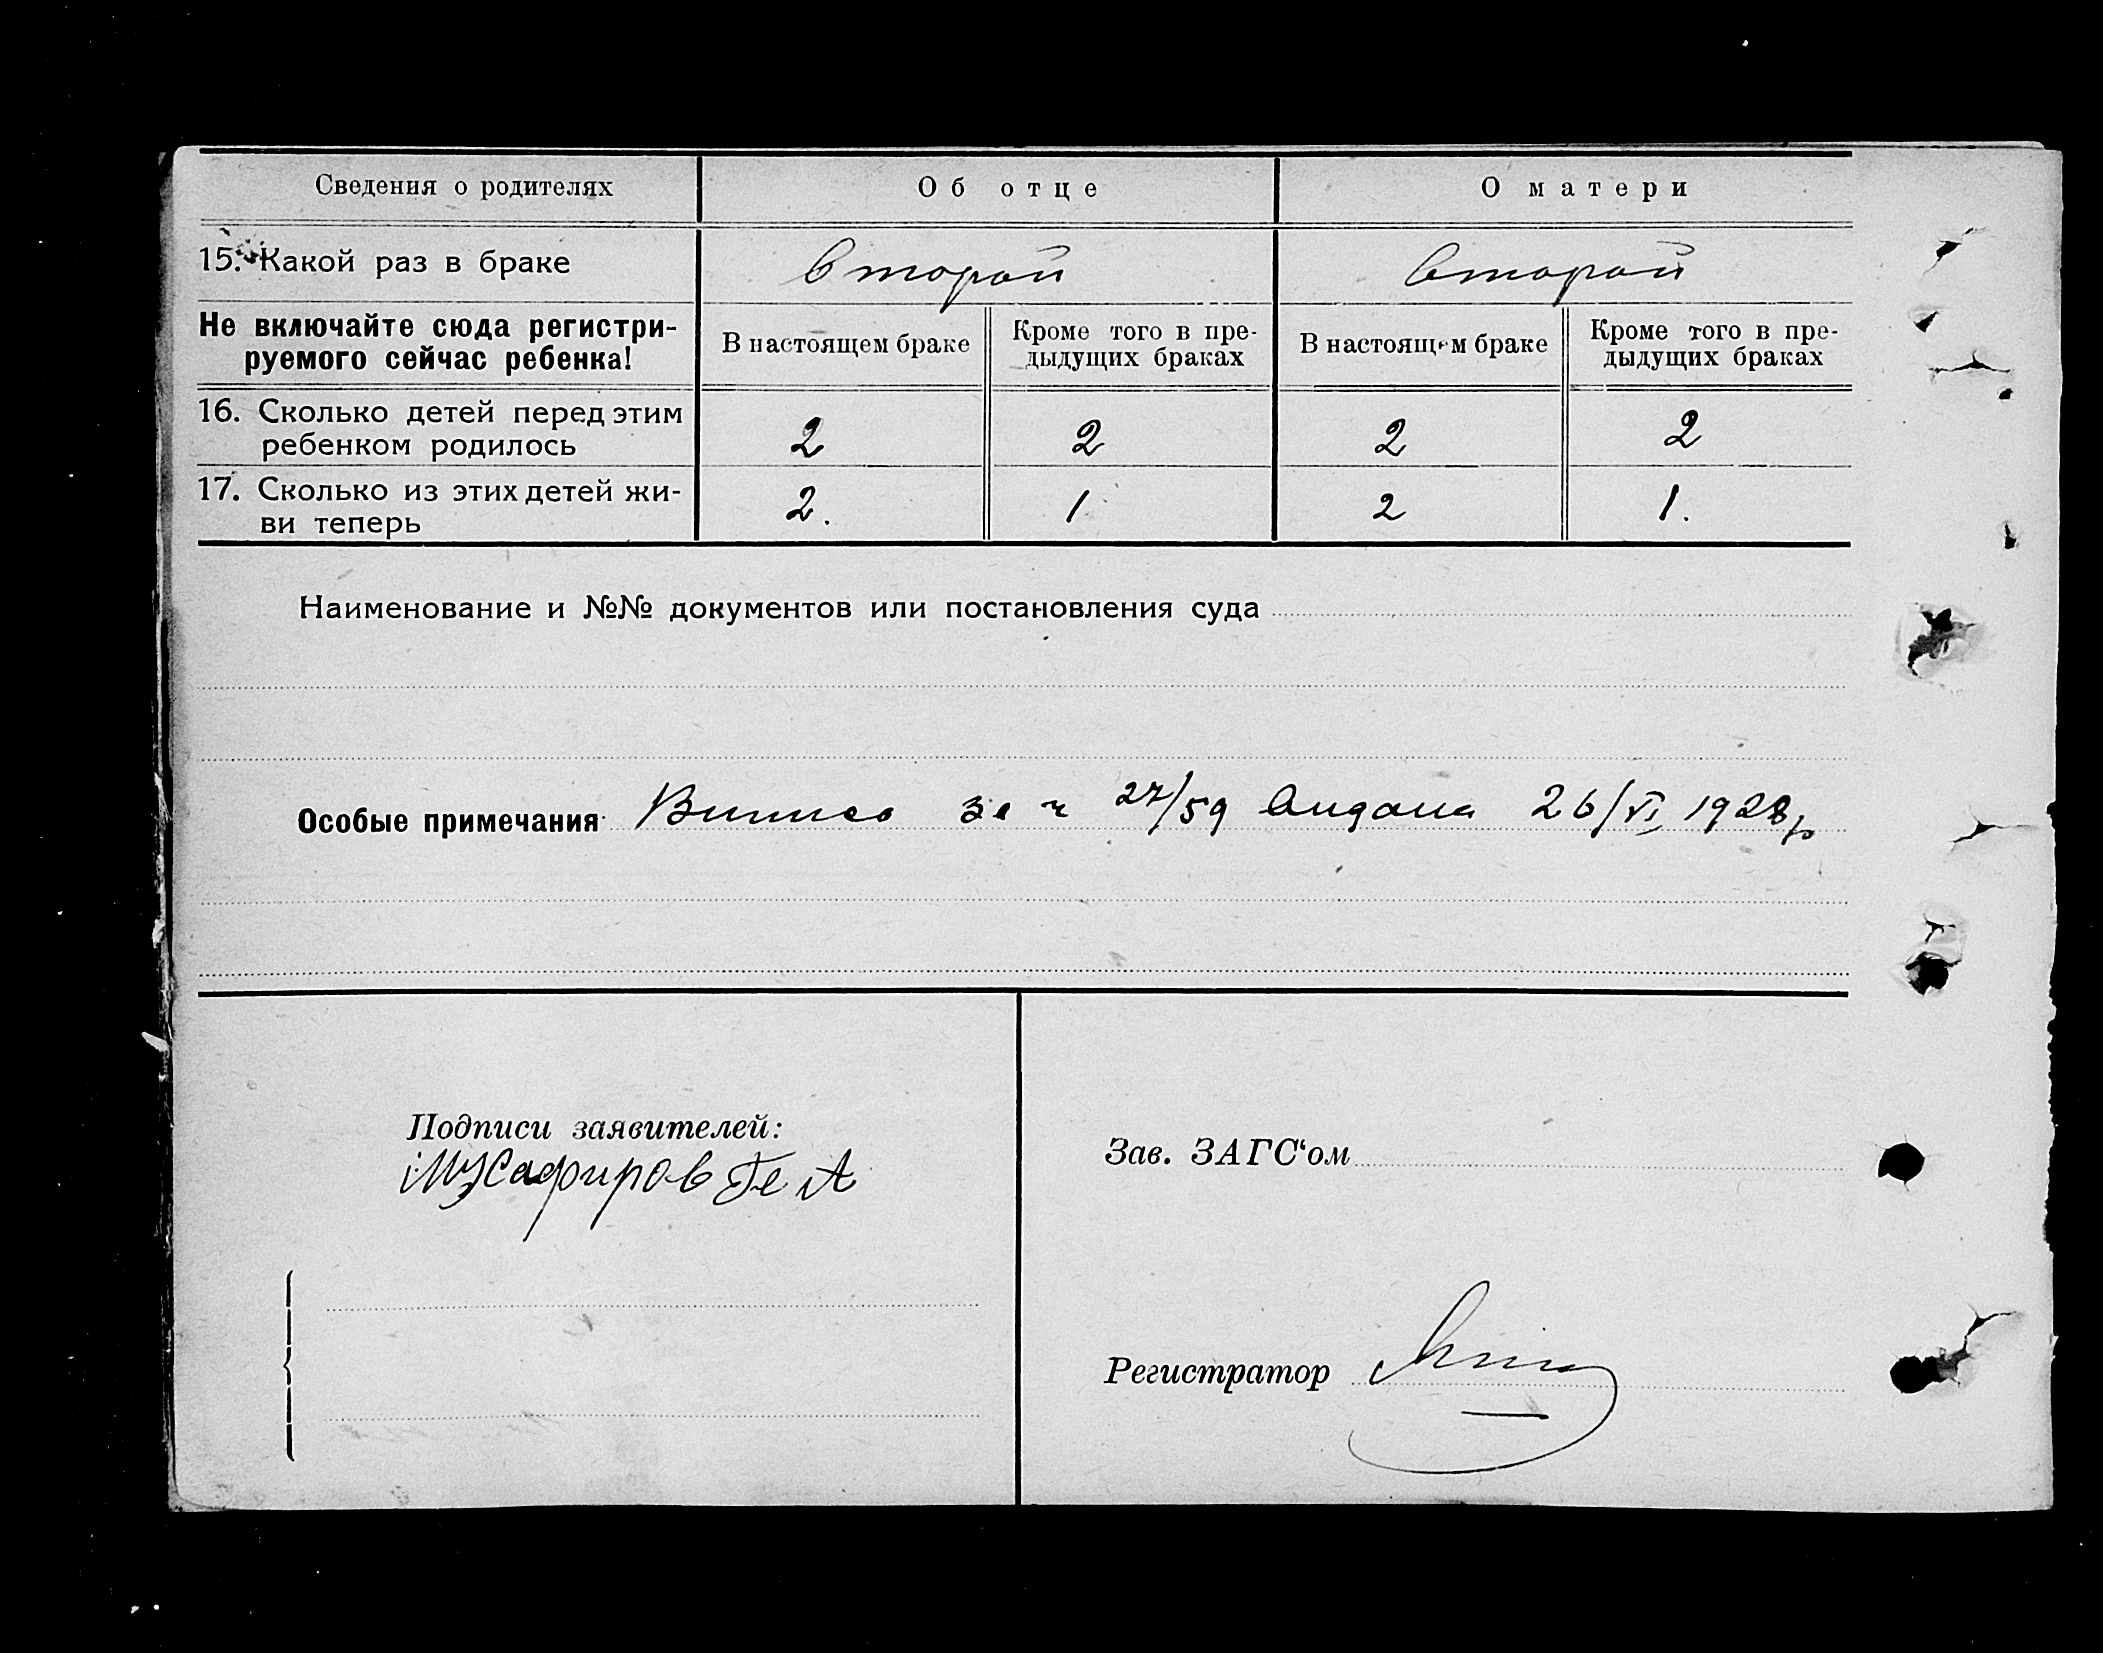 Сведения о родителях
Об отце
О матери
15. Какой раз в браке
второй
второй
Не включайте сюда регистри-
руемого сейчас ребенка!
В настоящем браке
Кроме того в пре-
дыдущих браках
В настоящем браке
Кроме того в пре-
дыдущих браках
16. Сколько детей перед этим
ребенком родилось
2
2
2
2
17. Сколько из этих детей жи-
ви теперь
2.
1
2
1.
Наименование и №№ документов или постановления суда
Особые примечания 27/59 26/VI 1928 р
Подписи заявителей:
Мусафиров Ге А
Зав. ЗАГС‘ом
Регистратор